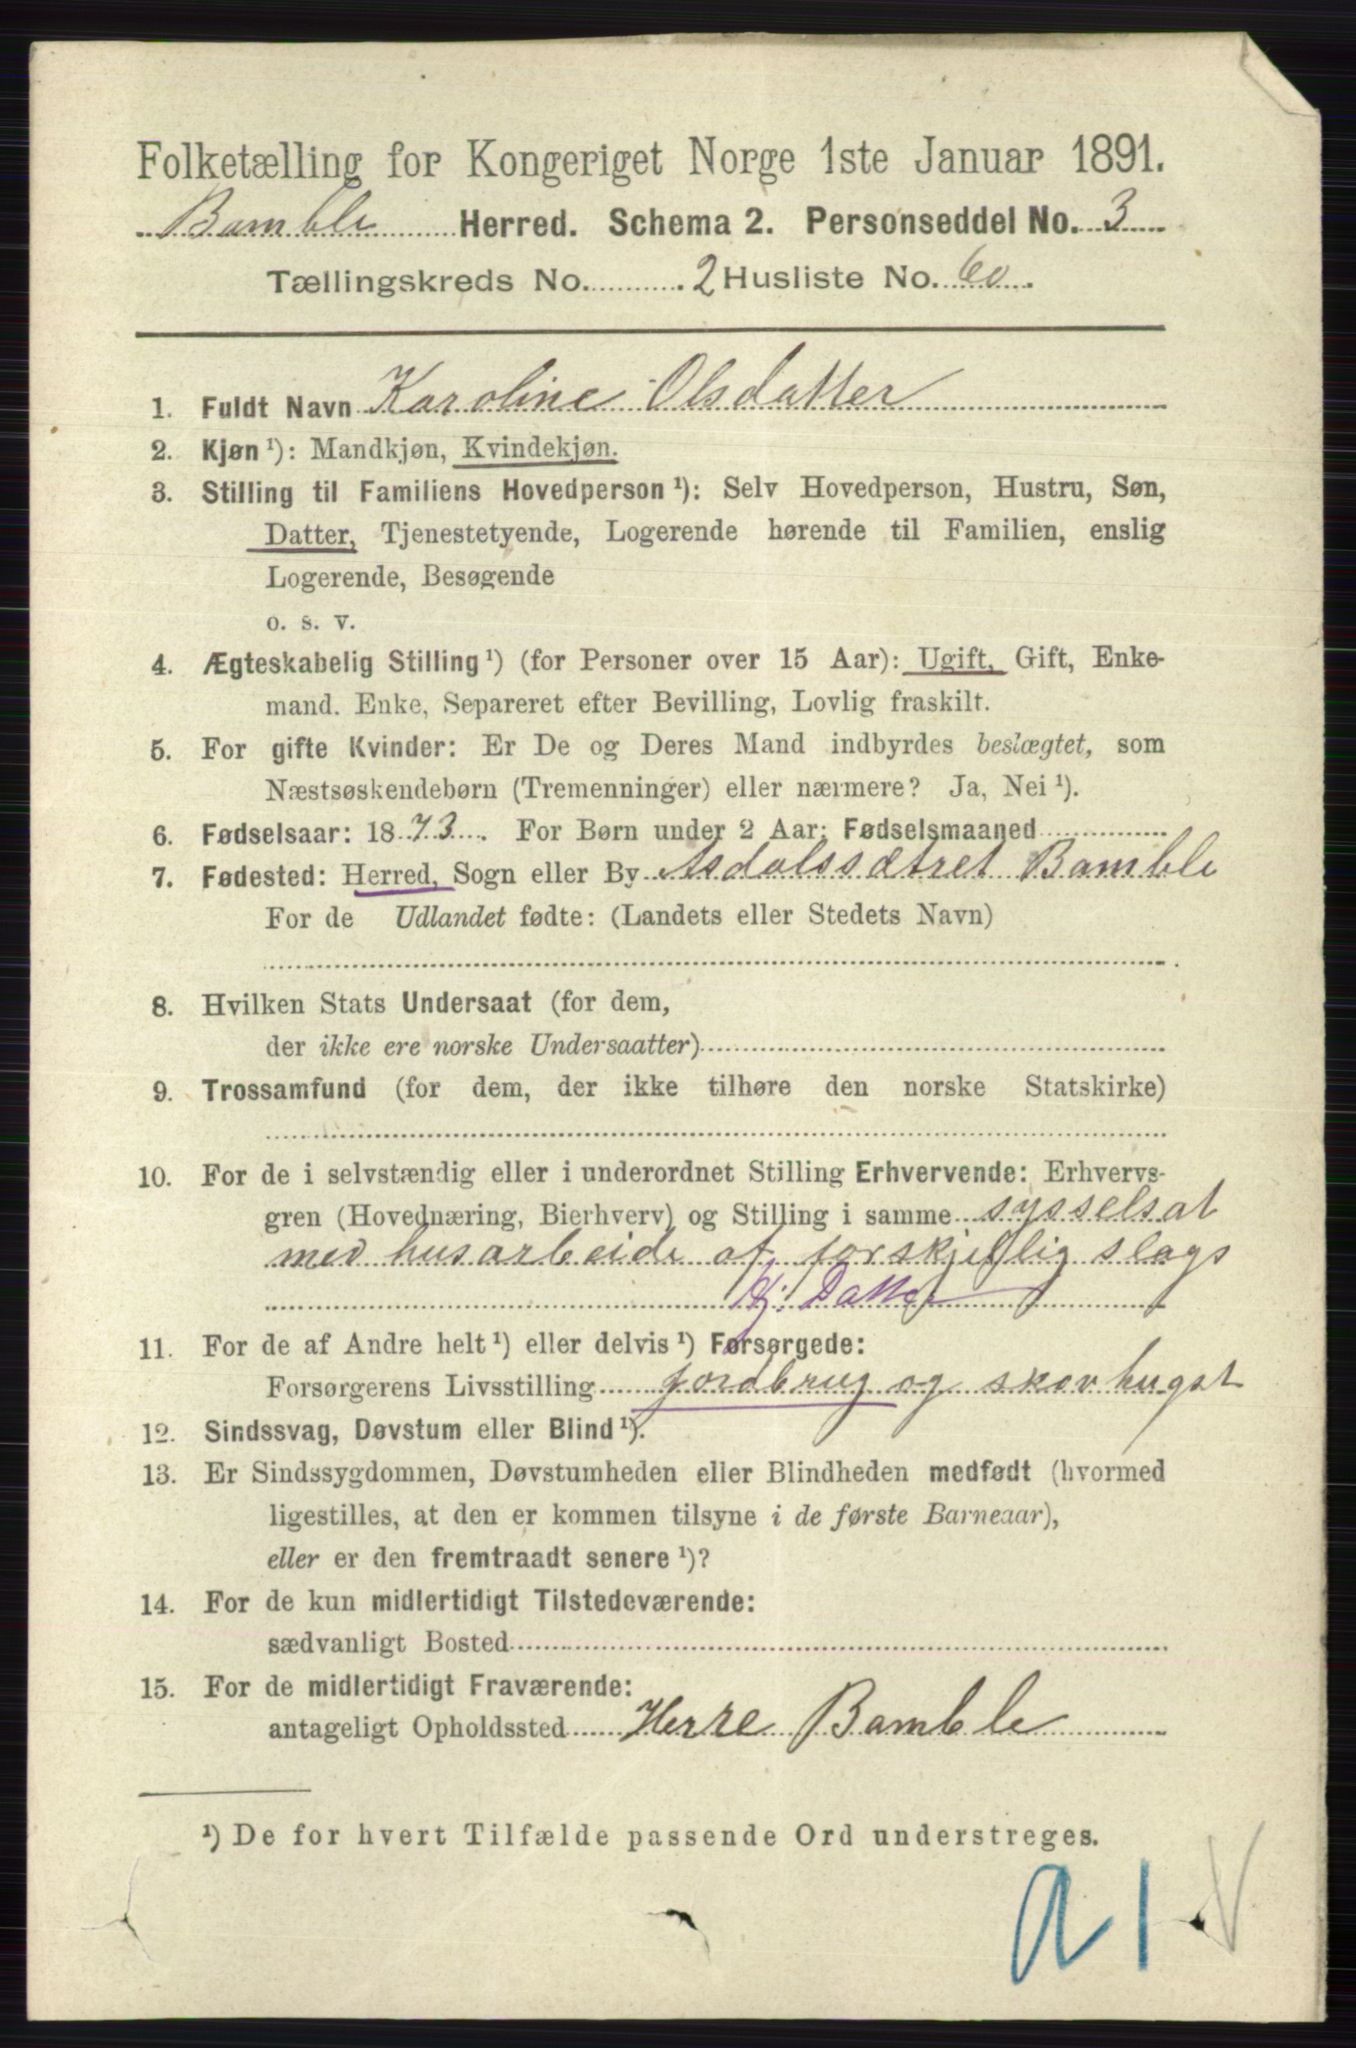 Folketælling for Kongeriget Norge 1ste Januar 1891.
Bamble Herred. Schema 2. Personseddel No. 3
Tællingskreds No. 2 Husliste No. 60.
1. Fuldt Navn Karoline Olsdatter
2. Kjøn ¹): Mandkjøn, Kvindekjøn.
3. Stilling til Familiens Hovedperson ¹): Selv Hovedperson, Hustru, Søn,
Datter, Tjenestetyende, Logerende hørende til Familien, enslig
Logerende, Besøgende
o. s. v.
4. Ægteskabelig Stilling ¹) (for Personer over 15 Aar): Ugift, Gift, Enke-
mand. Enke, Separeret efter Bevilling, Lovlig fraskilt.
5. For gifte Kvinder: Er De og Deres Mand indbyrdes beslægtet, som
Næstsøskendebørn (Tremenninger) eller nærmere? Ja, Nei ¹).
6. Fødselsaar: 1873. For Børn under 2 Aar: Fødselsmaaned
7. Fødested: Herred, Sogn eller By Asdalssætret Bamble
For de Udlandet fødte: (Landets eller Stedets Navn)
8. Hvilken Stats Undersaat (for dem,
der ikke ere norske Undersaatter)
9. Trossamfund (for dem, der ikke tilhøre den norske Statskirke)
10. For de i selvstændig eller i underordnet Stilling Erhvervende: Erhvervs-
gren (Hovednæring, Bierhverv) og Stilling i samme sysselsat
med husarbeide af forskjellig slags
Hj. Datter
11. For de af Andre helt ¹) eller delvis ¹) Forsørgede:
Forsørgerens Livsstilling jordbrug og skovhugst
12. Sindssvag, Døvstum eller Blind ¹).
13. Er Sindssygdommen, Døvstumheden eller Blindheden medfødt (hvormed
ligestilles, at den er kommen tilsyne i de første Barneaar),
eller er den fremtraadt senere ¹)?
14. For de kun midlertidigt Tilstedeværende:
sædvanligt Bosted
15. For de midlertidigt Fraværende:
antageligt Opholdssted Herre Bamble
¹) De for hvert Tilfælde passende Ord understreges.
a 1 V